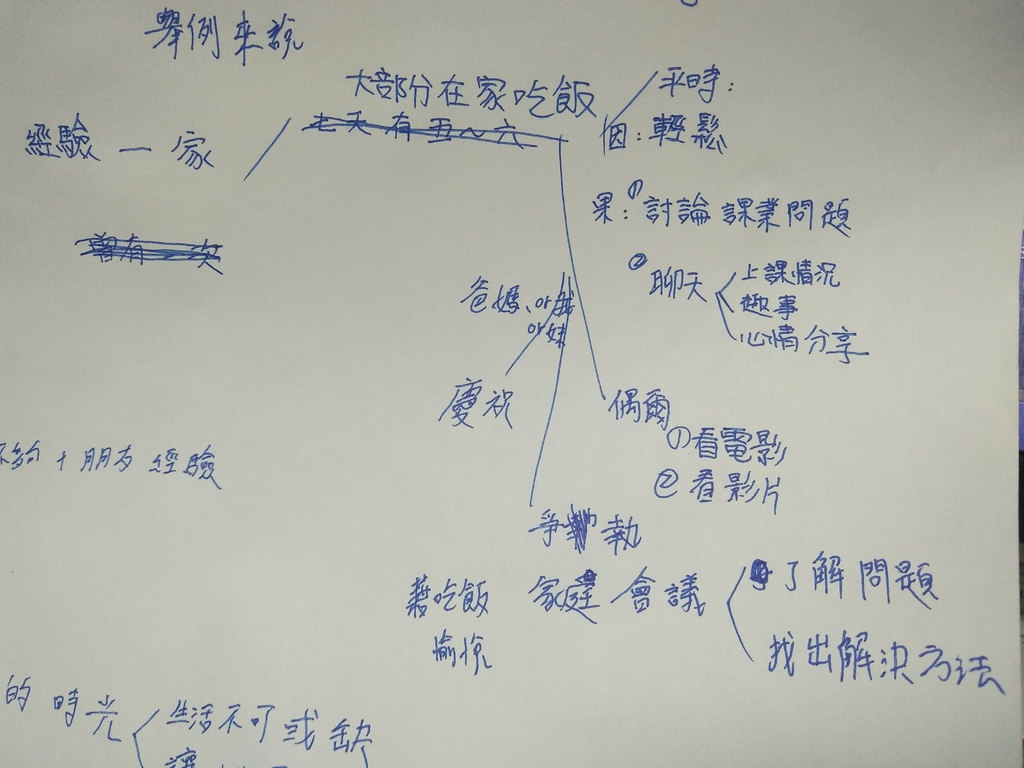 舉例來說
大部分在家吃飯
七天有五~六
經驗一家
平時:
因:輕鬆
果:①討論課業問題
②聊天
上課情況
趣事
心情分享
曾有一次
爸媽、or我
or妹
慶祝
偶爾
①看電影
②看影片
不夠+朋友經驗
爭執
藉吃飯
愉悅
家庭會議
了解問題
找出解決方法
的時光
生活不可或缺
讓